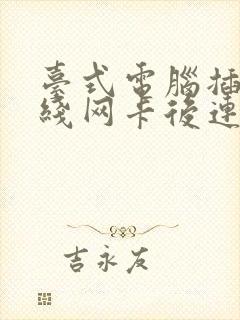 臺式電腦插
綫网卡後連
吉永友